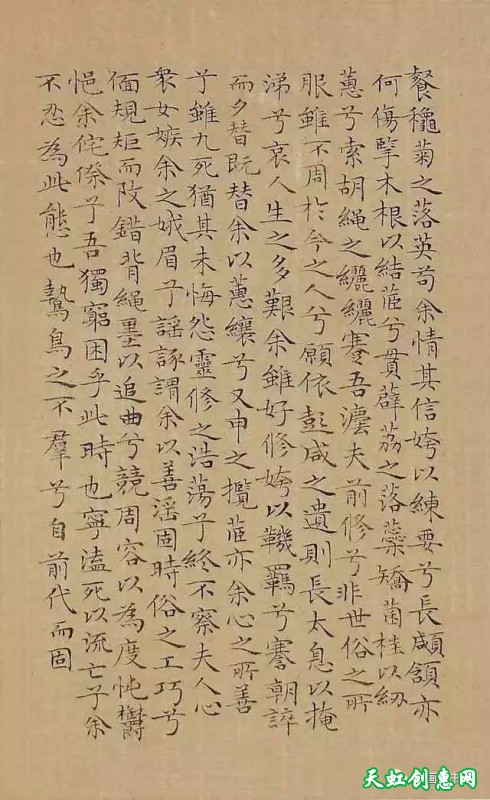 餐穐菊之落英苟余情其信姱以練要兮長顑頷亦
何傷擥木根以結茝兮貫薜荔之落蘂矯菌桂以紉
蕙兮索胡繩之纚纚謇吾灋夫前修兮非世俗之所
服雖不周於今之人兮願依彭咸之遺則長太息以掩
涕兮哀人生之多艱余雖好修姱以鞿羈兮謇朝誶
而夕替既替余以蕙纕兮又申之攬茝亦余心之所善
兮雖九死猶其未悔怨靈修之浩蕩兮終不察夫人心
衆女嫉余之娥眉兮謡諑謂余以善滛固時俗之工巧兮
偭規矩而改錯背繩墨以追曲兮競周容以為度忳欝
悒余侘傺兮吾獨窮困乎此時也寧溘死以流亡兮余
不忍為此態也鷙鳥之不羣兮自前代而固
天虹创惠网